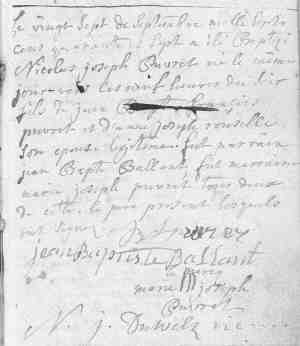 le vingt sept de septembre mille sept
cens quarante et sept a été Baptizé
Nicolas joseph Puvret né le meme
jour vers les neuf heures du soir
fils de jean françois
puvret et d'anne joseph rouselle
son epouse legitime fut parrain
jean Bapte Ballant fut marraine
marie joseph puvret tous deux
de cette le pere present lesquels
ont signé
jean Baptiste Ballant
la marcq
marie joseph
Puvret
N. j. Duwelz vic